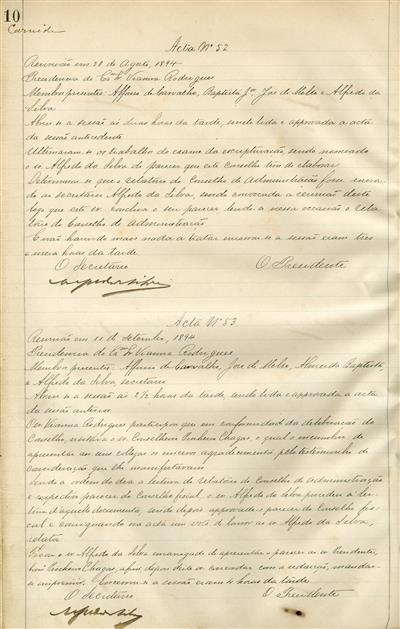 10
Acta Nº 52
Reunião em 28 de Agosto, 1894
Presidencia do Exmo Sr Vianna Rodrigues
Membros presentes: Affonso de Carvalho, Baptista Jor, José de Mello e Alfredo da
Silva
Abriu-se a sessão ás duas horas da tarde, sendo lida e approvada a acta
da sessão antecedente
Ultimaram-se os trabalhos do exame da escripturação, sendo nomeado
o sr. Alfredo da Silva do parecer que este conselho tem de elaborar
Determinou-se que o relatorio do Conselho de Administração fosse envia-
do ao secretario Alfredo da Silva, sendo convocada a reunião deste
logo que este sr. conclua o seu parecer, lendo-se nessa occasião o rela-
torio do Conselho de Administração
E não havendo mais nada a tratar encerrou-se a sessão eram tres
e meia horas da tarde
O Secretario O Presidente
Alfredo da Silva
Acta Nº 53
Reunião em 11 de Setembro, 1894
Presidencia do Exmo Sr Vianna Rodrigues
Membros presentes: Affonso de Carvalho, José de Mello, Baptista,
e Alfredo da Silva, secretario
Abriu-se a sessão ás 2½ horas da tarde, sendo lida e approvada a acta
da sessão anterior
O sr. Vianna Rodrigues participou que em conformidade da deliberação do
Conselho, visitára o sr. Conselheiro Pinheiro Chagas, o qual o incumbiu de
apresentar aos seus collegas os sinceros agradecimentos pelo testemunho de
consideração que lhe manifestavam
Sendo a ordem do dia a leitura do Relatorio do Conselho de Administração
e respectivo parecer do Conselho fiscal, o sr. Alfredo da Silva procedeu á lei-
tura d'aquelle documento, sendo depois approvado o parecer do Conselho fis-
cal e consignando na acta um voto de louvor ao sr. Alfredo da Silva,
relator
Ficou o sr. Alfredo da Silva encarregado de apresentar o parecer ao sr. Presidente,
Pinheiro Chagas, afim, depois d'este de concordar com a redacção, mandar-
se imprimir. Encerrou-se a sessão eram 4 horas da tarde
O Secretario O Presidente
Alfredo da Silva